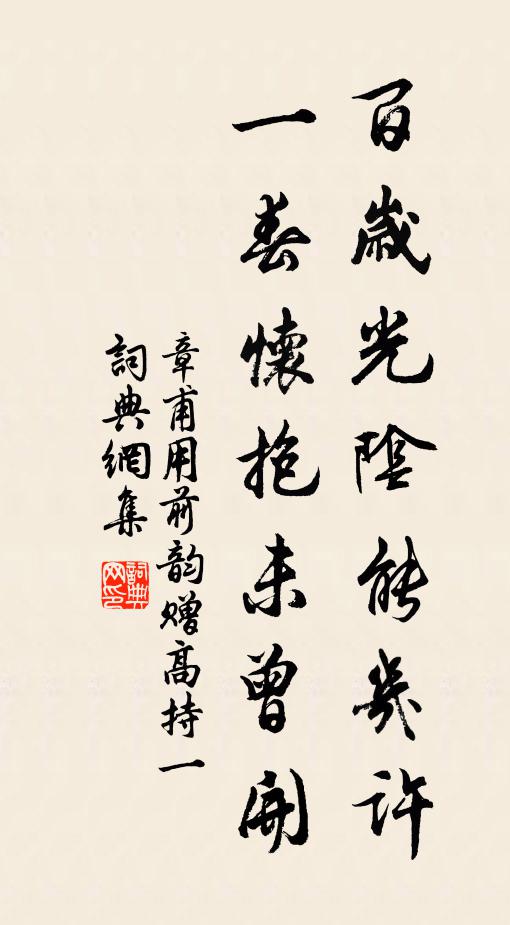 百歲光陰能幾許
一春懷抱未曾開
章甫用前韵贈高持一
詞典網集
詞典网印